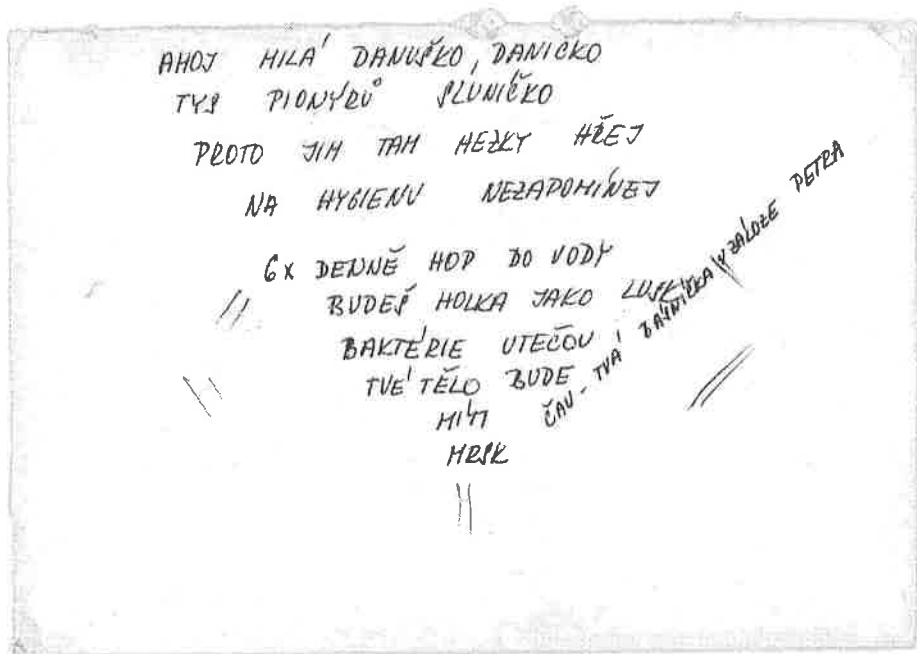 AHOJ MILÁ DANUŠKO, DANIČKO
TYS PIONÝRŮ SLUNÍČKO
PROTO JIM TAM HEZKY HŘEJ
NA HYGIENU NEZAPOMÍNEJ
6x DENNĚ HOP DO VODY
BUDEŠ HOLKA JAKO LUSK
BAKTÉRIE UTEČOU
TVÉ TĚLO BUDE
MÍTI
MRSK
ČAU - TVÁ BÁSNÍŘKA V ZÁLOZE PETRA